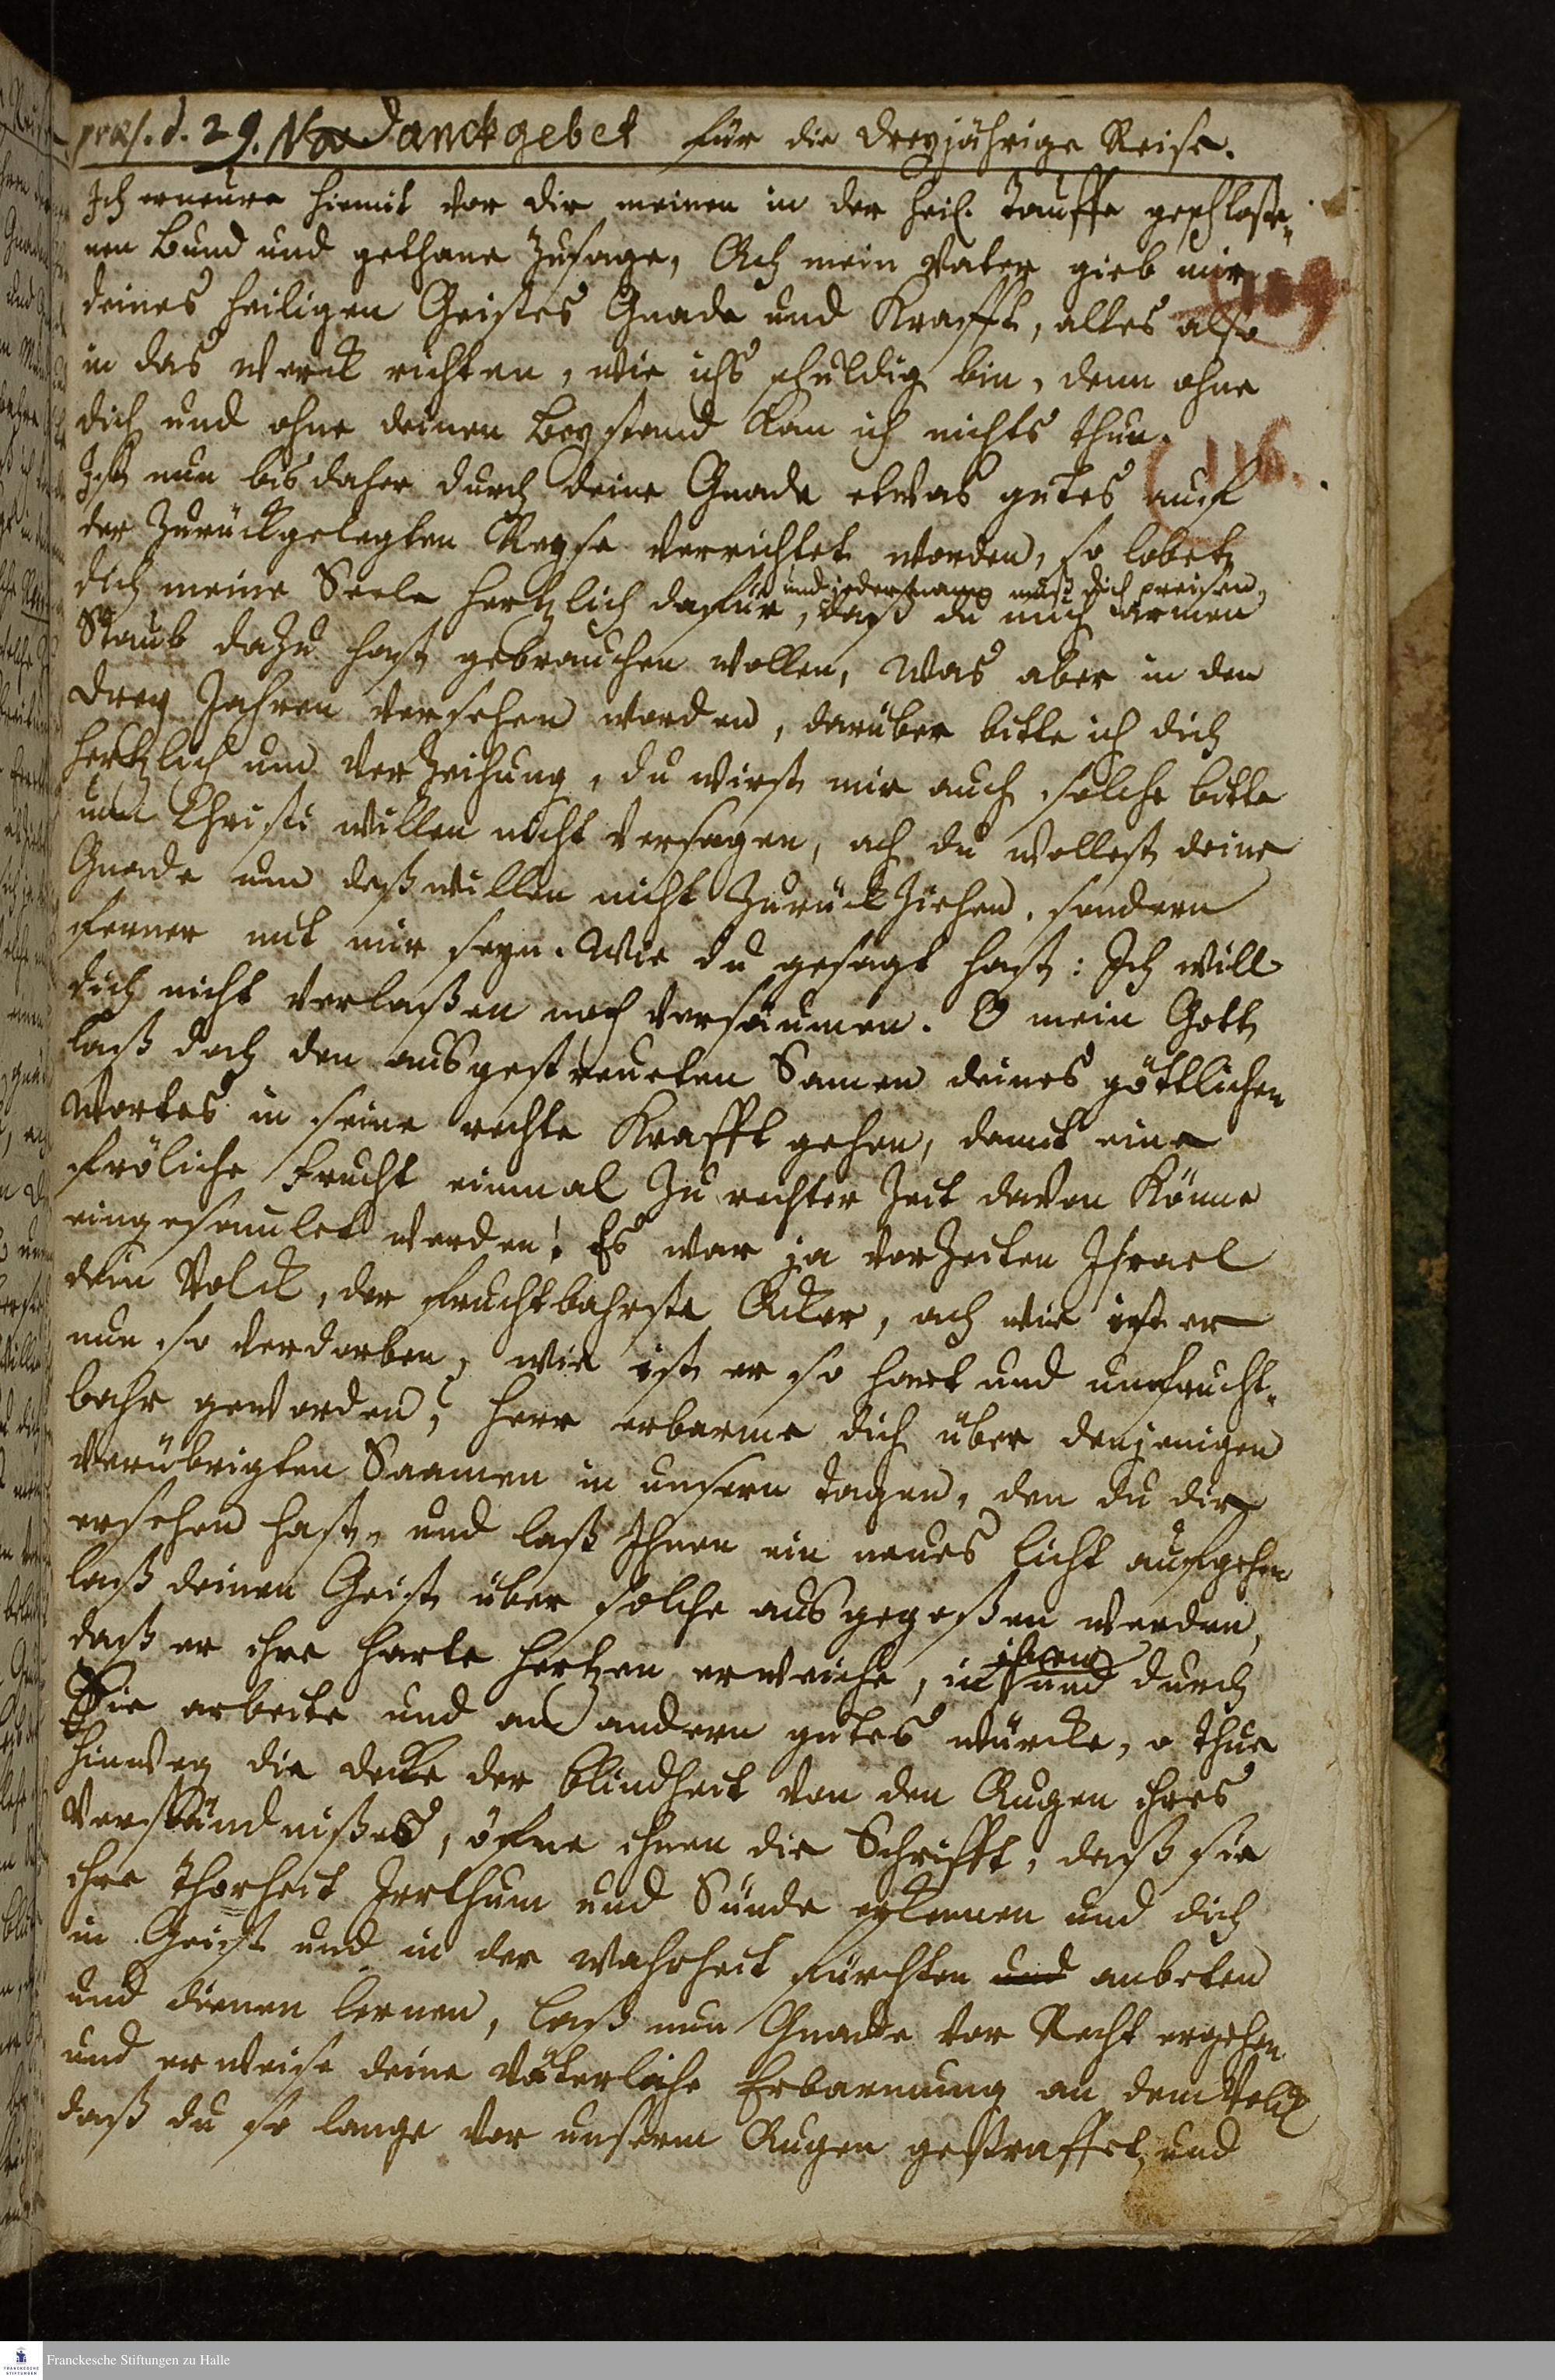 præs. d. 29. Nov Danckgebet für die dreyjährige Reise.
Ich erneure hiemit vor dir meinen in der heil. Tauffe geschloße-
nen Bund und gethane Zusage, Ach mein Vater gieb mir
109
deines heiligen Geistes Gnade und Krafft, alles also
in das Werck richten, wie ichs schuldig bin, denn ohne
dich und ohne deinen Beystand kan ich nichts thun.
116.
Ist nun bis daher durch deine Gnade etwas gutes auf
der zurückgelegten Reyse verrichtet worden, so lobet
und jederman muß dich preisen,
dich meine Seele hertzlich dafür, daß du mich armen
Staub dazu hast gebrauchen wollen, Was aber in den
drey Jahren versehen worden, darüber bitte ich dich
hertzlich um Verzeihung, du wirst mir auch solche bitte
um Christi willen nicht versagen, ach du wollest deine
Gnade um deßwillen nicht zurückziehen, sondern
ferner mit mir seyn. Wie du gesagt hast: Ich will
dich nicht verlaßen noch versäumen. O mein Gott
laß doch den ausgestreueten Samen deines göttlichen
Wortes in seine rechte Krafft gehen, damit eine
fröliche Frucht einmal zu rechter Zeit davon könne
eingesamlet werden! Es war ja vorzeiten Israel
dein Volck, der fruchtbahrste Acker, ach wie ist er
nun so verdorben, wie ist er so hart und unfrucht-
bahr geworden, Herr erbarme dich über denjenigen
verübrigten Saamen in unsern Tagen, den du dir
ersehen hast, und laß Ihnen ein neues Licht aufgehen
laß deinen Geist über solche ausgegoßen werden,
ihnen
daß er ihre harte Hertzen erweiche, in und durch
Sie arbeite und an andern gutes würcke, o thue
hinweg die decke der Blindheit von den Augen ihres
Verständnißes, öfne ihnen die Schrifft, daß sie
ihre Thorheit Irrthum und Sünde erkennen und dich
in Geist und in der Wahrheit fürchten und anbeten
und dienen lernen, laß nun Gnade vor Recht ergehen
und erweise deine Väterliche Erbarmung an dem Volck
daß du so lange vor unserm Augen gestraffet, und
Franckesche Stiftungen zu Halle